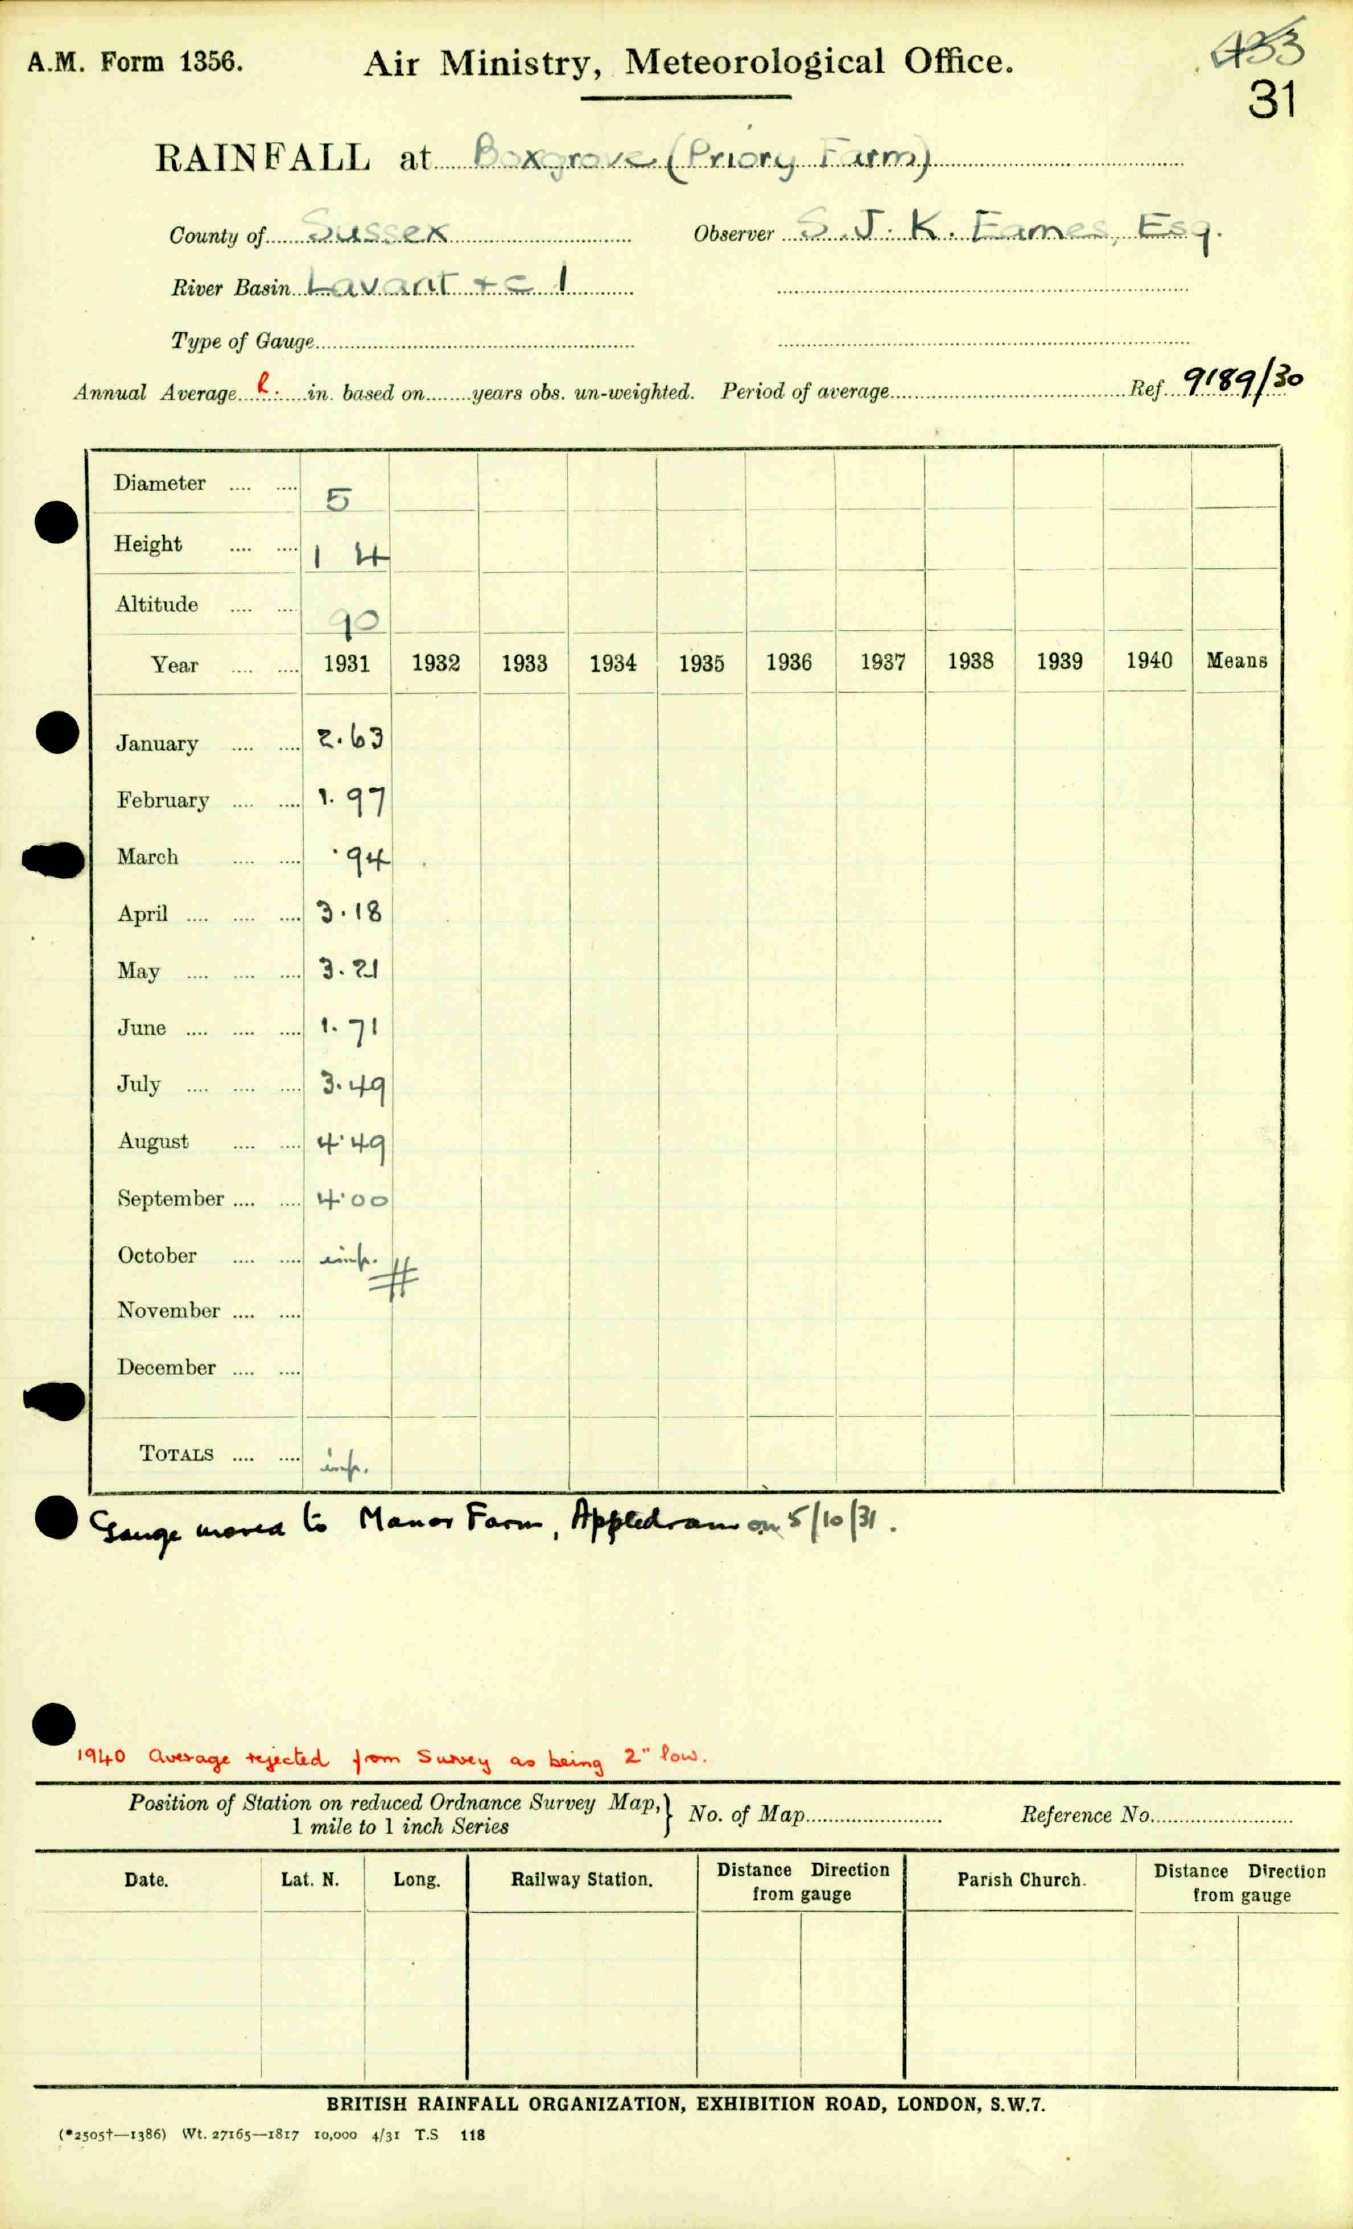 A.M. Form 1356.
Air Ministry, Meteorological Office.
433
31
RAINFALL at Boxgrove (Priory Farm)
County of Sussex Observer S. J. K. Eames, Esq.
River Basin Lavant &c 1
Type of Gauge
Annual Average R. in. based on years obs. un-weighted. Period of average Ref. 9189/30
Diameter .... .... 5
Height .... .... 1 4
Altitude .... .... 90
Year .... .... 1931 1932 1933 1934 1935 1936 1937 1938 1939 1940 Means
January .... .... 2.63
February .... .... 1.97
March .... .... .94
April .... .... .... 3.18
May .... .... .... 3.21
June .... .... .... 1.71
July .... .... .... 3.49
August .... .... 4.49
September .... .... 4.00
October .... .... imp. #
November .... ....
December .... ....
TOTALS .... .... imp.
Gauge moved to Manor Farm, Appledram on 5/10/31.
1940 Average rejected from Survey as being 2" low.
Position of Station on reduced Ordnance Survey Map, } No. of Map Reference No.
1 mile to 1 inch Series
Date. Lat. N. Long. Railway Station. Distance Direction from gauge Parish Church. Distance Direction from gauge
BRITISH RAINFALL ORGANIZATION, EXHIBITION ROAD, LONDON, S.W.7.
(*2505†—1386) Wt. 27165—1817 10,000 4/31 T.S 118